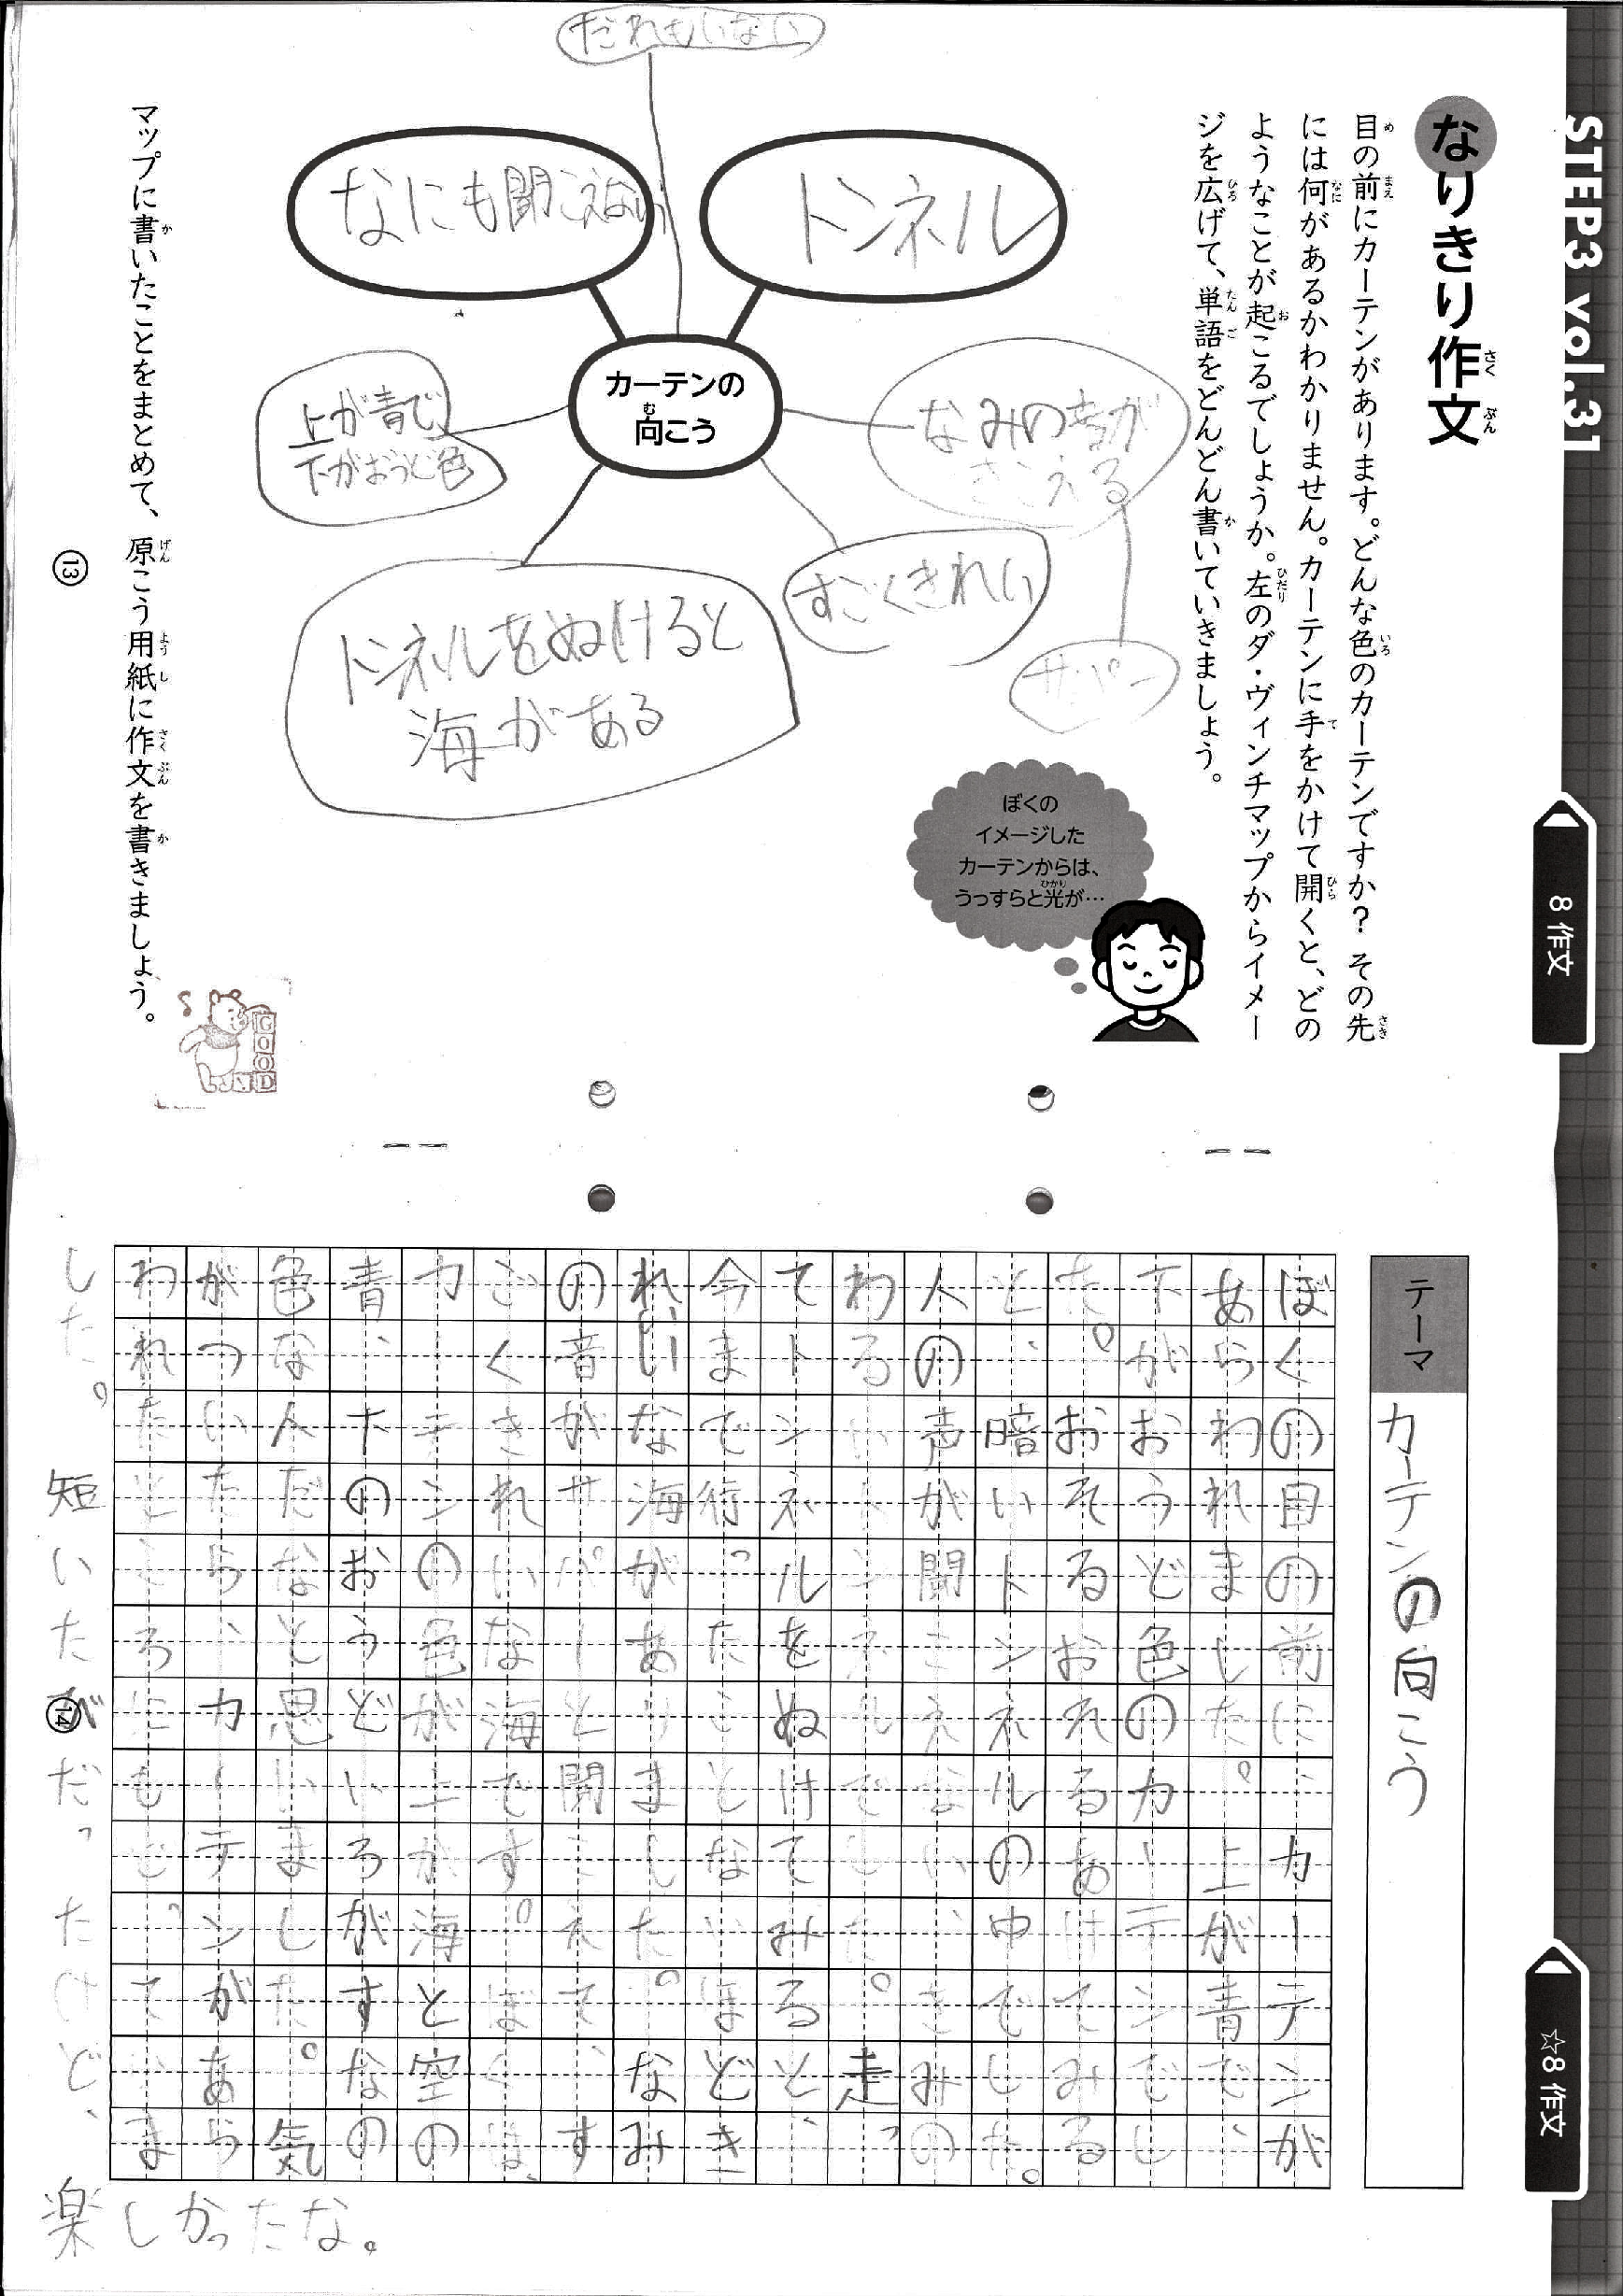 STEP3 vol.31
なりきり作文
目の前にカーテンがあります。どんな色のカーテンですか？ その先
には何があるかわかりません。カーテンに手をかけて開くと、どの
ようなことが起こるでしょうか。左のダ・ヴィンチマップからイメー
ジを広げて、単語をどんどん書いていきましょう。
だれもいない
トンネル
なにも聞こえない
カーテンの
向こう
なみの音が
きこえる
サパー
すごくきれい
上が青で、
下がおうど色
トンネルをぬけると
海がある
ぼくの
イメージした
カーテンからは、
うっすらと光が…
マップに書いたことをまとめて、原こう用紙に作文を書きましょう。
GOOD
13
8 作文
テーマ
カーテンの向こう
ぼくの目の前に、カーテンが
あらわれました。上が青で、
下がおうど色のカーテンでし
た。おそるおれるあけてみる
と、暗いトンネルの中でした。
人の声が聞こえない、きみの
わるいトンネルでした。走っ
てトンネルをぬけてみると、
今まで行ったことないほどき
れいな海がありました。なみ
の音がサパーと聞こえて、す
ごくきれいな海です。ぼくは、
カーテンの色が上が海と空の
青、下のおうどいろがすなの
色なんだなと思いました。気
がついたら、カーテンがあら
われたところにもどっていま
した。短いたびだったけど、
楽しかったな。
14
☆8 作文